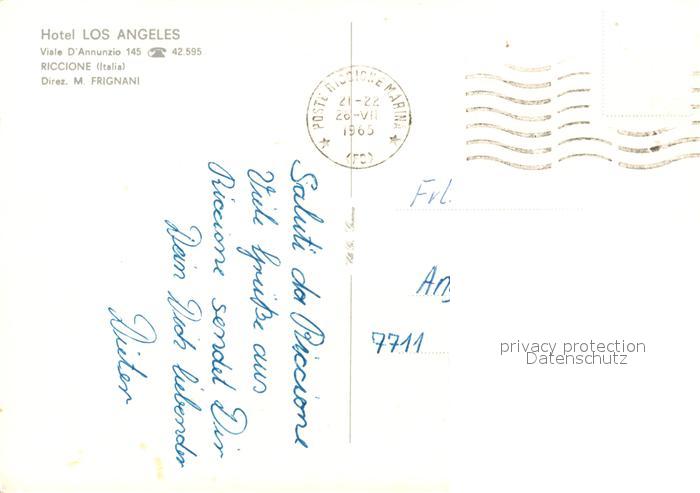 Hotel LOS ANGELES
Viale D'Annunzio 145 ☎ 42.595
RICCIONE (Italia)
Direz. M. FRIGNANI
POSTE RICCIONE MARINA
21-22
26-VII
1965
(FO)
Saluti da Riccione
Viele Grüße aus
Riccione sendet Dir
Dein Dich liebender
Dieter
Frl.
Ang
7711
privacy protection
Datenschutz